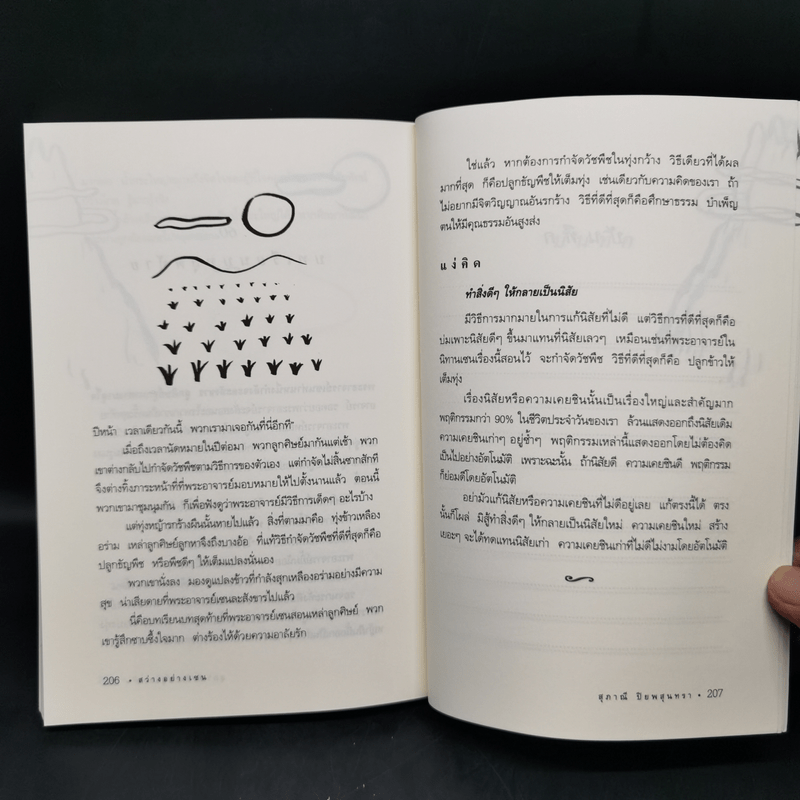 ปีหน้า เวลาเดียวกันนี้ พวกเรามาเจอกันที่นี่อีกที"
เมื่อถึงเวลานัดหมายในปีต่อมา พวกลูกศิษย์มากันแต่เช้า พวก
เขาต่างกลับไปกำจัดวัชพืชตามวิธีการของตัวเอง แต่กำจัดไม่สิ้นซากสักที
จึงต่างทิ้งภาระหน้าที่ที่พระอาจารย์มอบหมายให้ไปตั้งนานแล้ว ตอนนี้
พวกเขามาชุมนุมกัน ก็เพื่อฟังดูว่าพระอาจารย์มีวิธีการเด็ดๆ อะไรบ้าง
แต่ทุ่งหญ้ารกร้างผืนนั้นหายไปแล้ว สิ่งที่ตามมาคือ ทุ่งข้าวเหลือง
อร่าม เหล่าลูกศิษย์ลูกหาจึงถึงบางอ้อ ที่แท้วิธีกำจัดวัชพืชที่ดีที่สุดก็คือ
ปลูกธัญพืช หรือพืชดีๆ ให้เต็มแปลงนั่นเอง
พวกเขานั่งลง มองดูแปลงข้าวที่กำลังสุกเหลืองอร่ามอย่างมีความ
สุข น่าเสียดายที่พระอาจารย์เซนละสังขารไปแล้ว
นี่คือบทเรียนบทสุดท้ายที่พระอาจารย์เซนสอนเหล่าลูกศิษย์ พวก
เขารู้สึกซาบซึ้งใจมาก ต่างร้องไห้ด้วยความอาลัยรัก
206 • สว่างอย่างเซน
ใช่แล้ว หากต้องการกำจัดวัชพืชในทุ่งกว้าง วิธีเดียวที่ได้ผล
มากที่สุด ก็คือปลูกธัญพืชให้เต็มทุ่ง เช่นเดียวกับความคิดของเรา ถ้า
ไม่อยากมีจิตวิญญาณอันรกร้าง วิธีที่ดีที่สุดก็คือศึกษาธรรม บำเพ็ญ
ตนให้มีคุณธรรมอันสูงส่ง
แง่คิด
ทำสิ่งดีๆ ให้กลายเป็นนิสัย
มีวิธีการมากมายในการแก้นิสัยที่ไม่ดี แต่วิธีการที่ดีที่สุดก็คือ
บ่มเพาะนิสัยดีๆ ขึ้นมาแทนที่นิสัยเลวๆ เหมือนเช่นที่พระอาจารย์ใน
นิทานเซนเรื่องนี้สอนไว้ จะกำจัดวัชพืช วิธีที่ดีที่สุดก็คือ ปลูกข้าวให้
เต็มทุ่ง
เรื่องนิสัยหรือความเคยชินนั้นเป็นเรื่องใหญ่และสำคัญมาก
พฤติกรรมกว่า 90% ในชีวิตประจำวันของเรา ล้วนแสดงออกถึงนิสัยเดิม
ความเคยชินเก่าๆ อยู่ซ้ำๆ พฤติกรรมเหล่านี้แสดงออกโดยไม่ต้องคิด
เป็นไปอย่างอัตโนมัติ เพราะฉะนั้น ถ้านิสัยดี ความเคยชินดี พฤติกรรม
ก็ย่อมดีโดยอัตโนมัติ
อย่ามัวแก้นิสัยหรือความเคยชินที่ไม่ดีอยู่เลย แก้ตรงนี้ได้ ตรง
นั้นก็โผล่ มิสู้ทำสิ่งดีๆ ให้กลายเป็นนิสัยใหม่ ความเคยชินใหม่ สร้าง
เยอะๆ จะได้ทดแทนนิสัยเก่า ความเคยชินเก่าที่ไม่ดีไม่งามโดยอัตโนมัติ
สุภาณี ปิยพสุนทรา • 207